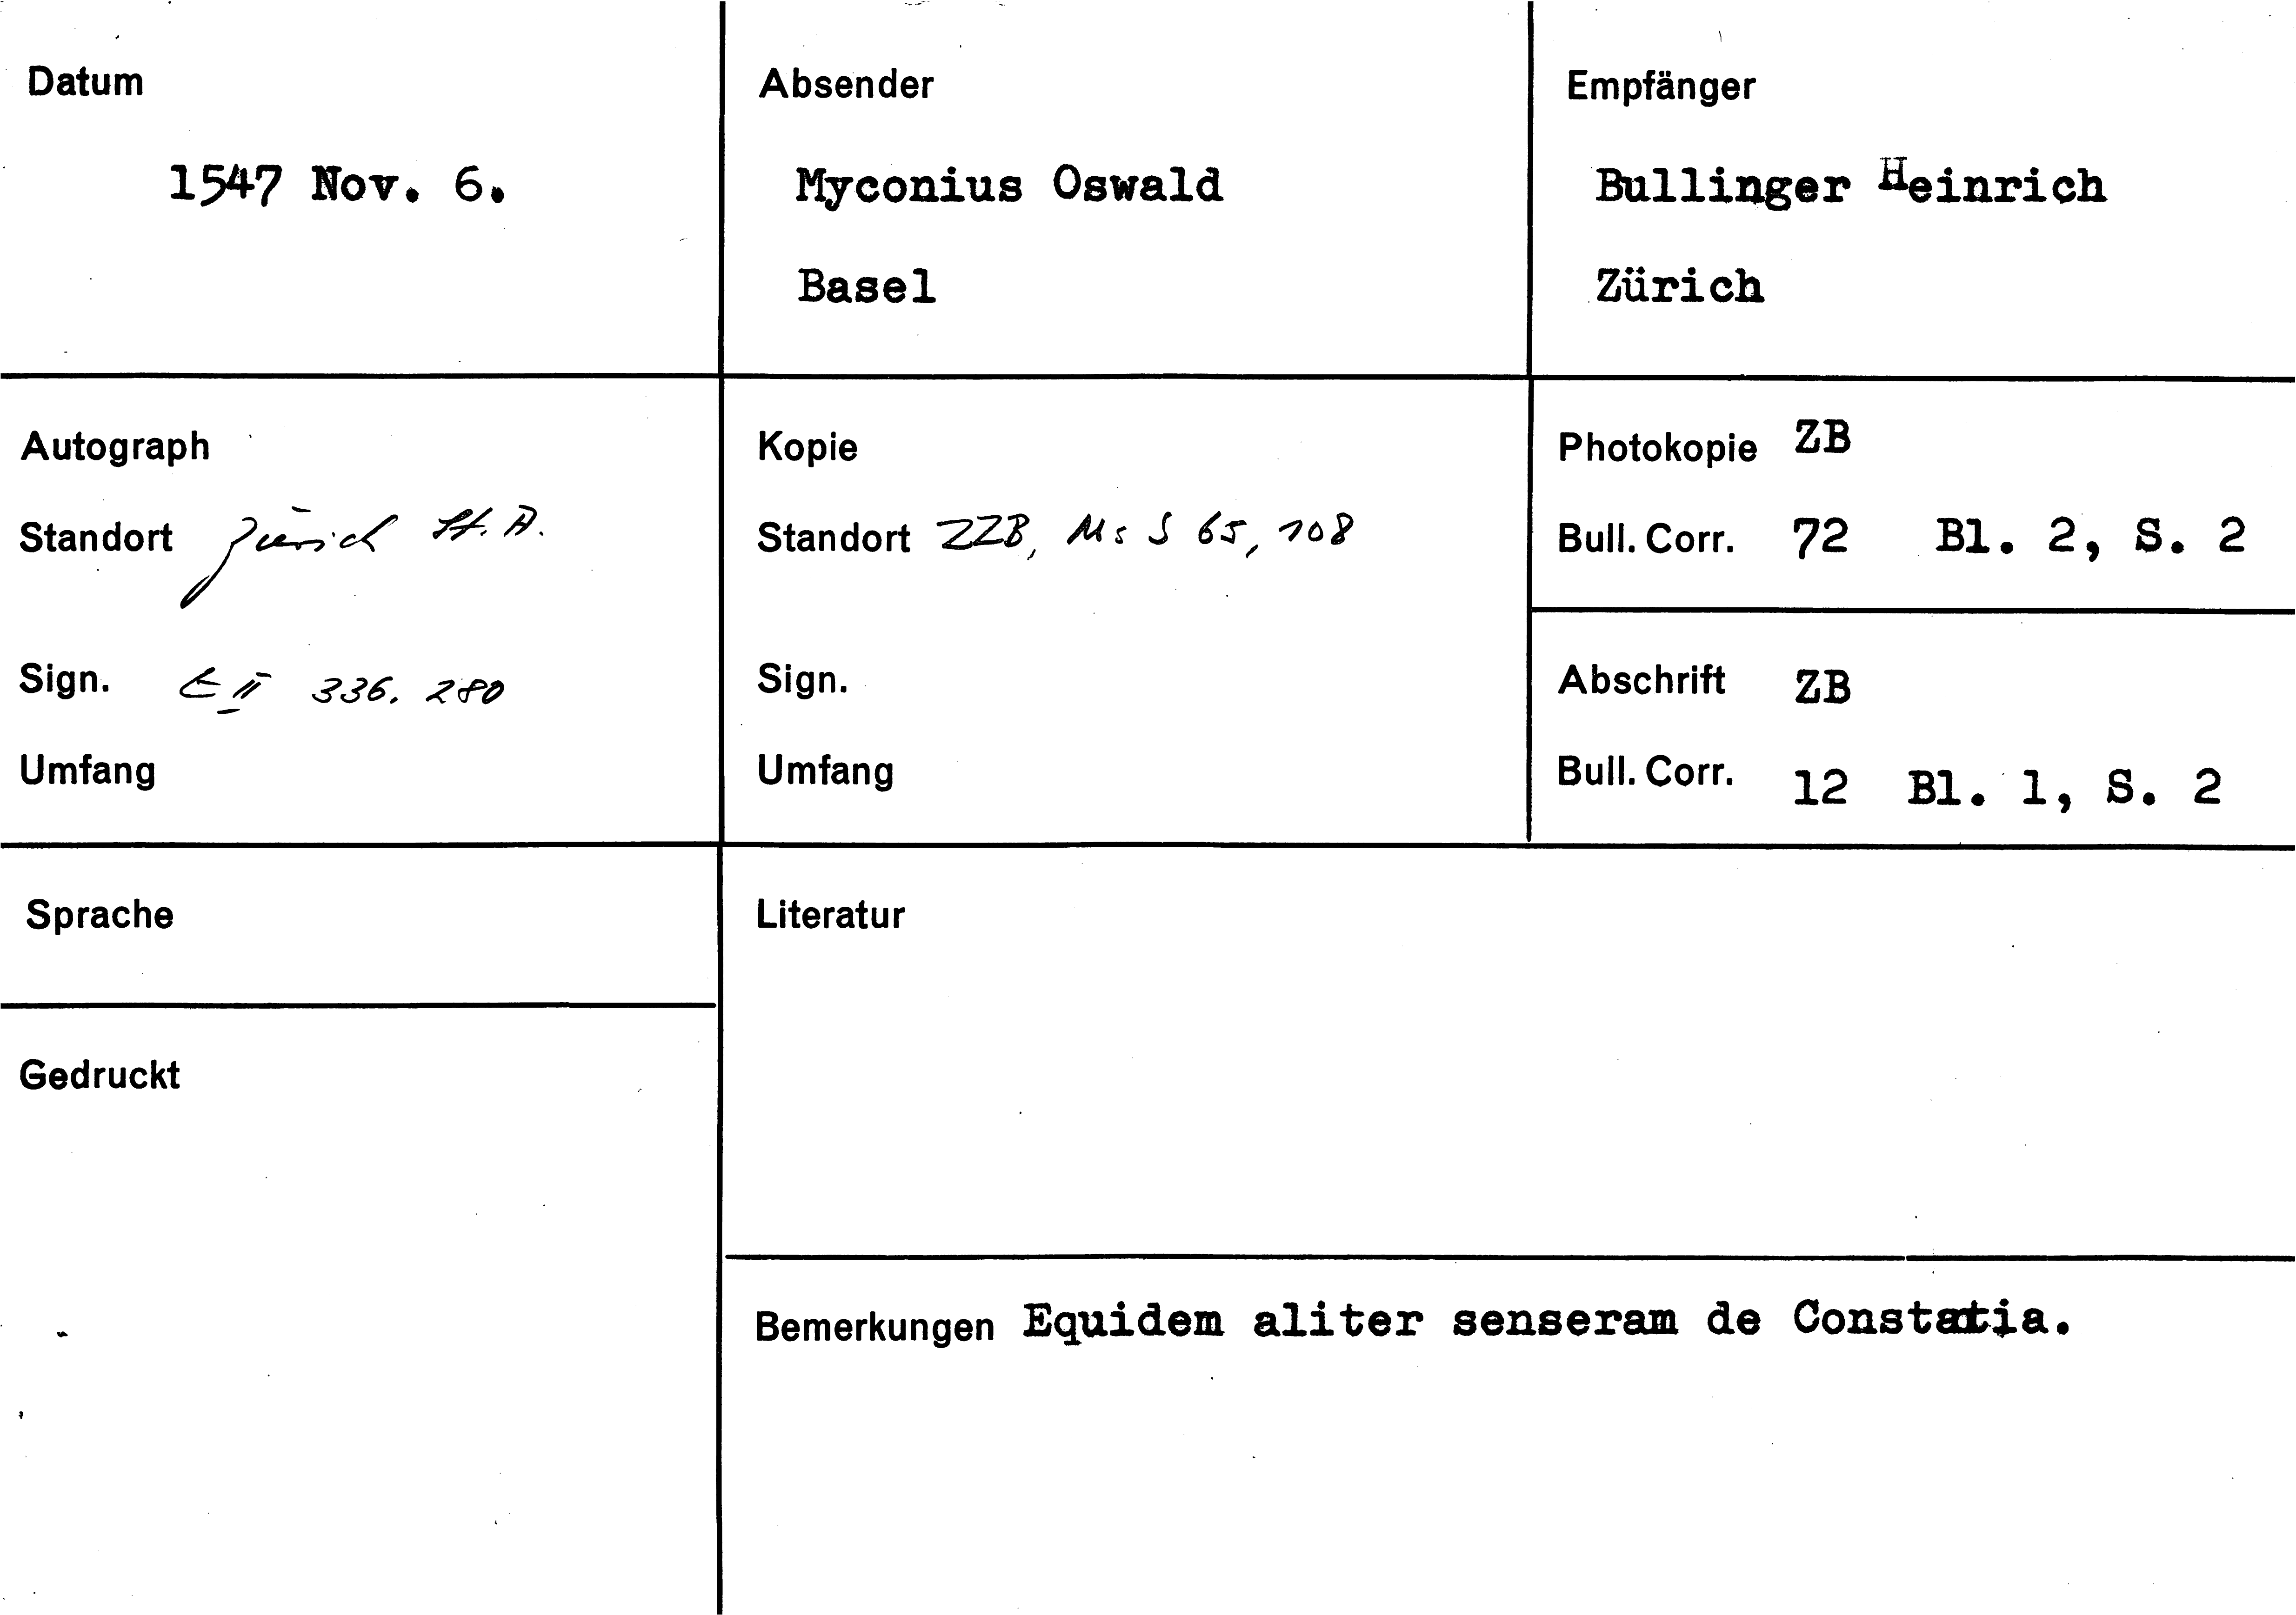 Datum
1547 Nov. 6.
Absender
Myconius Oswald
Basel
Empfänger
Bullinger Heinrich
Zürich
Autograph
Standort Zürich St. A.
Sign. E II 336. 280
Umfang
Kopie
Standort ZZB, Ms S 65, 108
Sign.
Umfang
Photokopie ZB
Bull. Corr. 72 Bl. 2, S. 2
Abschrift ZB
Bull. Corr. 12 Bl. 1, S. 2
Sprache
Gedruckt
Literatur
Bemerkungen Equidem aliter senseram de